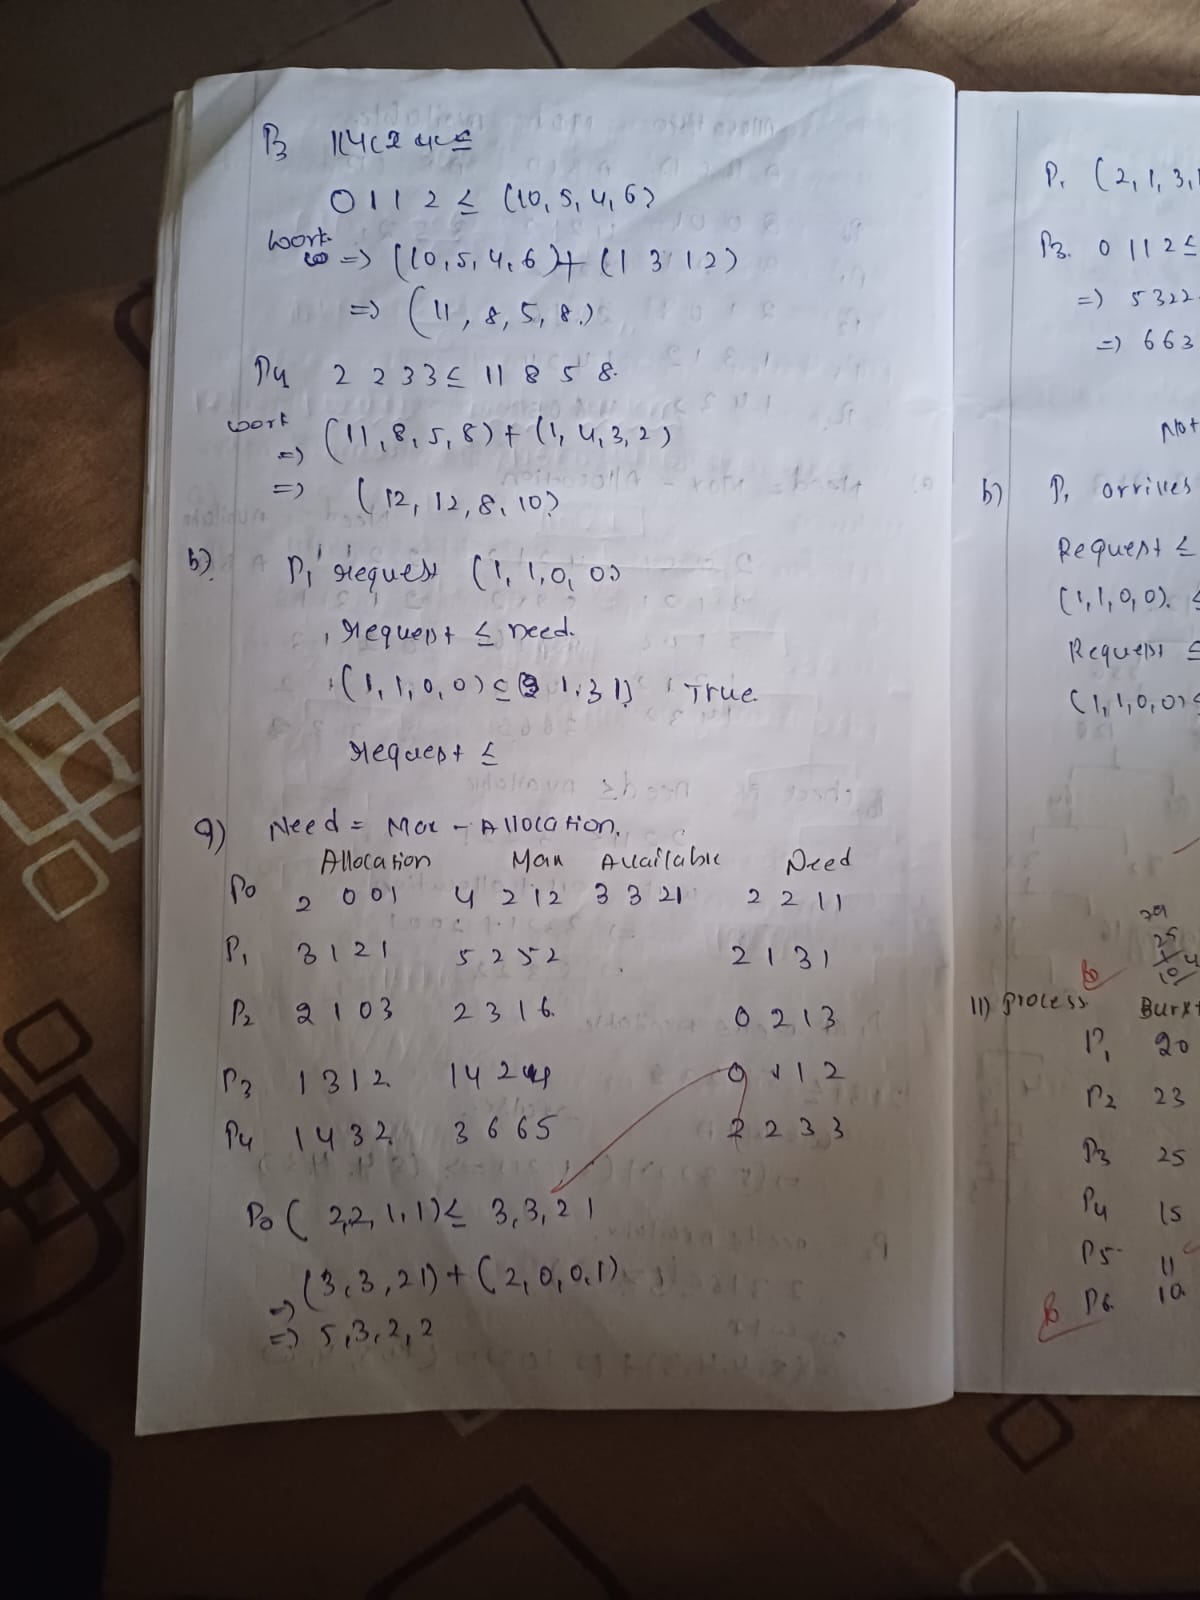 P3
0 1 1 2 ≤ (10, 5, 4, 6)
work
=> (10, 5, 4, 6) + (1 3 1 2)
=> (11, 8, 5, 8)
P4 2 2 3 3 ≤ 11 8 5 8.
work
=> (11, 8, 5, 8) + (1, 4, 3, 2)
=> (12, 12, 8, 10)
b) P1 request (1, 1, 0, 0)
request ≤ need.
(1, 1, 0, 0) ≤ 1, 3 1) True
request ≤
9) Need = Max - Allocation.
Allocation Max Available Need
P0 2 0 0 1 4 2 1 2 3 3 2 1 2 2 1 1
P1 3 1 2 1 5 2 5 2 2 1 3 1
P2 2 1 0 3 2 3 1 6 0 2 1 3
P3 1 3 1 2 1 4 2 4 0 1 1 2
P4 1 4 3 2 3 6 6 5 2 2 3 3
P0 ( 2,2, 1, 1) ≤ 3, 3, 2 1
=> (3, 3, 2 1) + (2, 0, 0, 1)
=> 5, 3, 2, 2
P1 (2, 1, 3,
P3. 0 1 1 2 ≤
=> 5 3 2 2
=> 6 6 3
Not
b) P1 arrives
Request ≤
(1, 1, 0, 0) ≤
Request ≤
(1, 1, 0, 0) ≤
11) process Burst
P1 20
P2 23
P3 25
P4 15
P5 11
P6 10